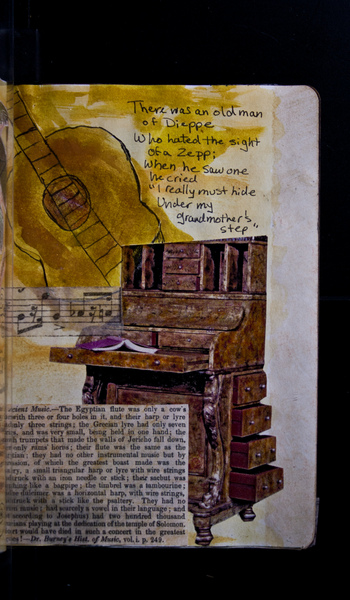 There was an old man
of Dieppe
Who hated the sight
of a Zepp;
When he saw one
he cried
"I really must hide
Under my
grandmother's
step"
ancient Music.—The Egyptian flute was only a cow's
with three or four holes in it, and their harp or lyre
only three strings; the Grecian lyre had only seven
and was very small, being held in one hand; the
trumpets that made the walls of Jericho fall down,
only rams' horns; their flute was the same as the
they had no other instrumental music but by
of which the greatest boast made was the
a small triangular harp or lyre with wire strings
struck with an iron needle or stick; their sacbut was
like a bagpipe; the timbrel was a tambourine;
the dulcimer was a horizontal harp, with wire strings,
struck with a stick like the psaltery. They had no
music; had scarcely a vowel in their language; and
according to Josephus) had two hundred thousand
playing at the dedication of the temple of Solomon.
would have died in such a concert in the greatest
—Dr. Burney's Hist. of Music, vol. i. p. 249.